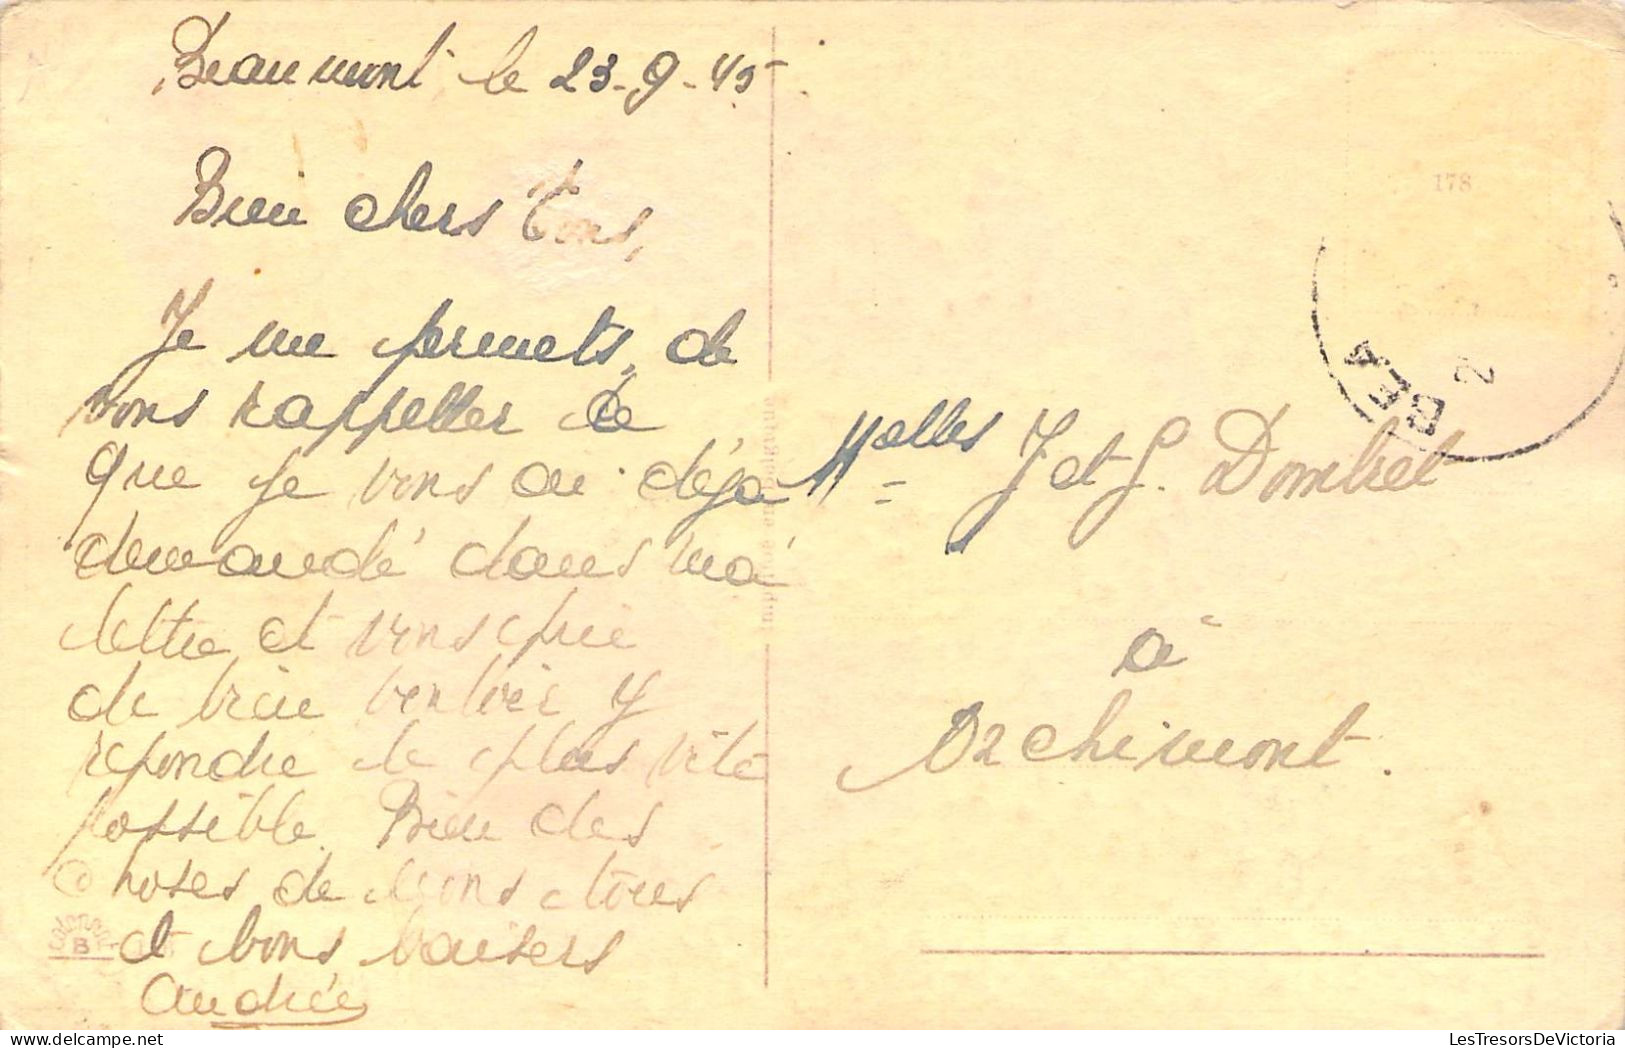 Beaumont, le 23-9-45
Bien chers Tous,
Je me permets, de
vous rappeller ce
que je vous ai déja
demandé dans ma
lettre et vous prie
de bien vouloir y
repondre le plus vite
possible. Bien des
choses de tous
et bons baisers
Andrée
178
BEA
2
Malles J et G. Dombret
à
Orchimont.
B
LesTresorsDeVictoria